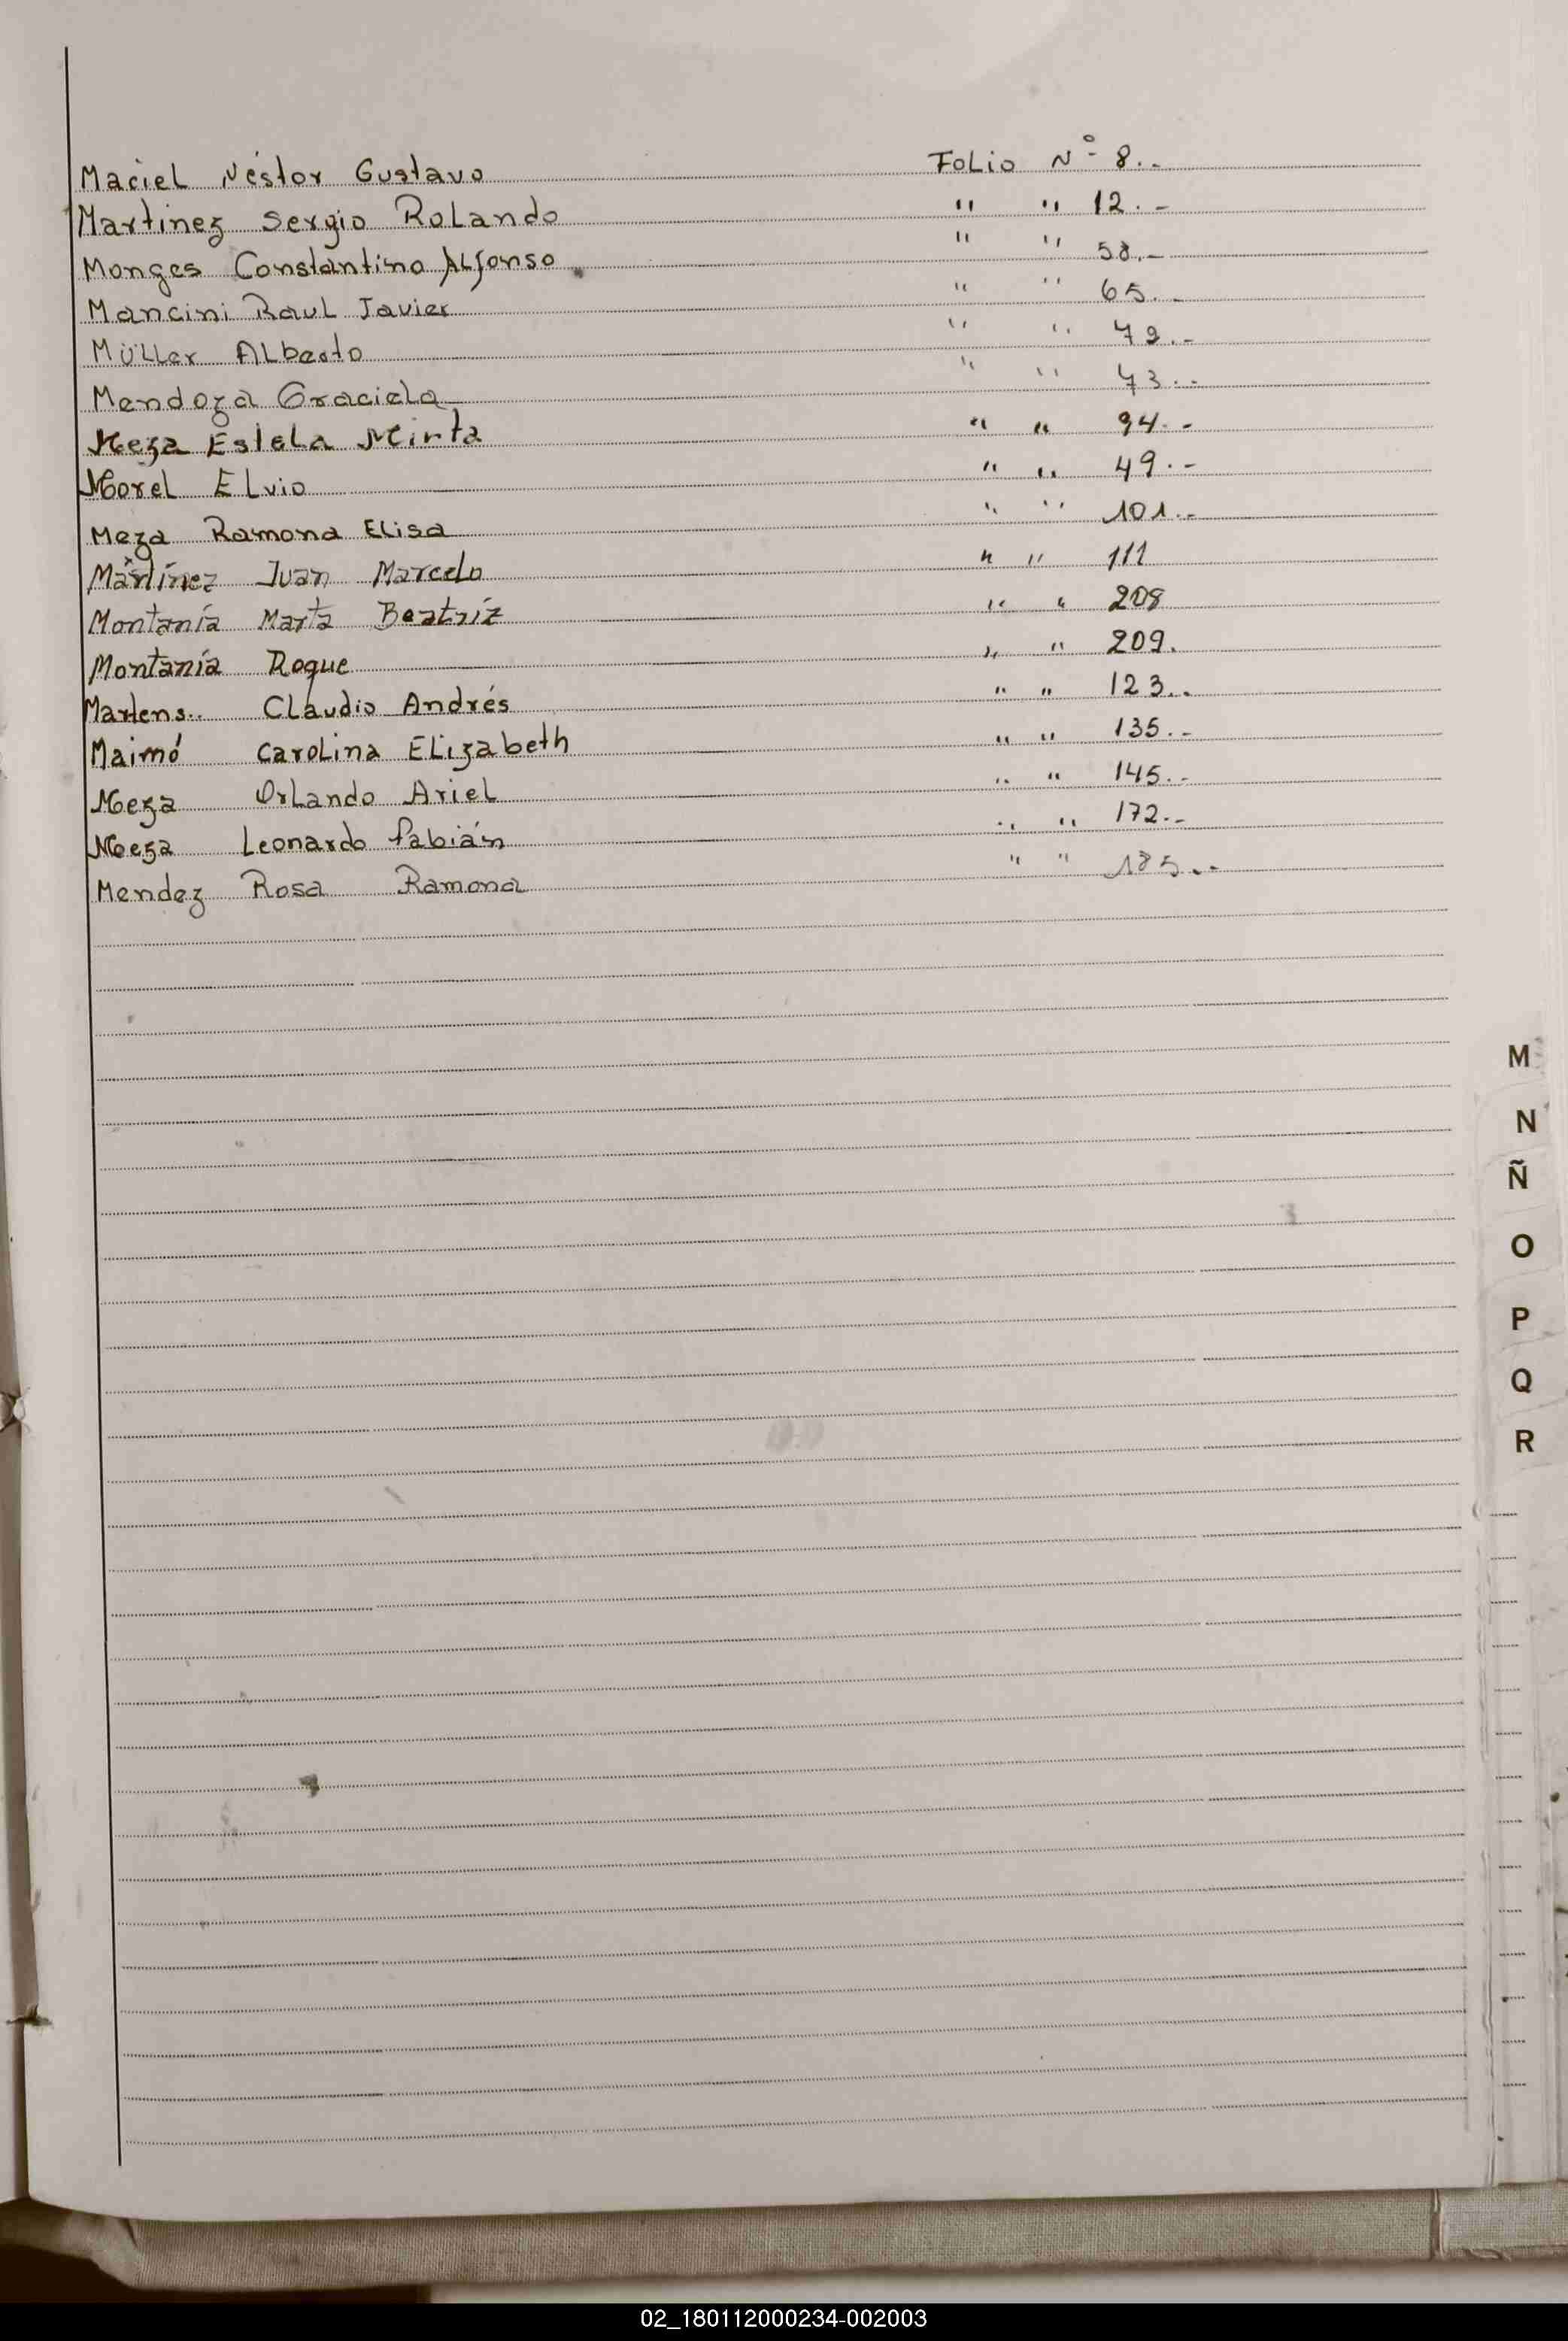 Maciel Néstor Gustavo Folio Nº 8.-
Martinez Sergio Rolando " " 12.-
Monges Constantino Alfonso " " 58.-
Mancini Raul Javier " " 65.-
Müller Alberto " "
Mendoza Graciela " "
Meza Estela Mirta " " 94.-
Morel Elvio " " 49.-
Meza Ramona Elisa " " 101.-
Martínez Juan Marcelo " " 111
Montanía Marta Beatríz " " 208
Montanía Roque " " 209.
Martens.. Claudio Andrés " " 123..
Maimó Carolina Elizabeth " " 135.-
Meza Orlando Ariel " " 145.-
Meza Leonardo Fabián " " 172.-
Mendez Rosa Ramona " " 185.-
M
N
Ñ
O
P
Q
R
02_180112000234-002003